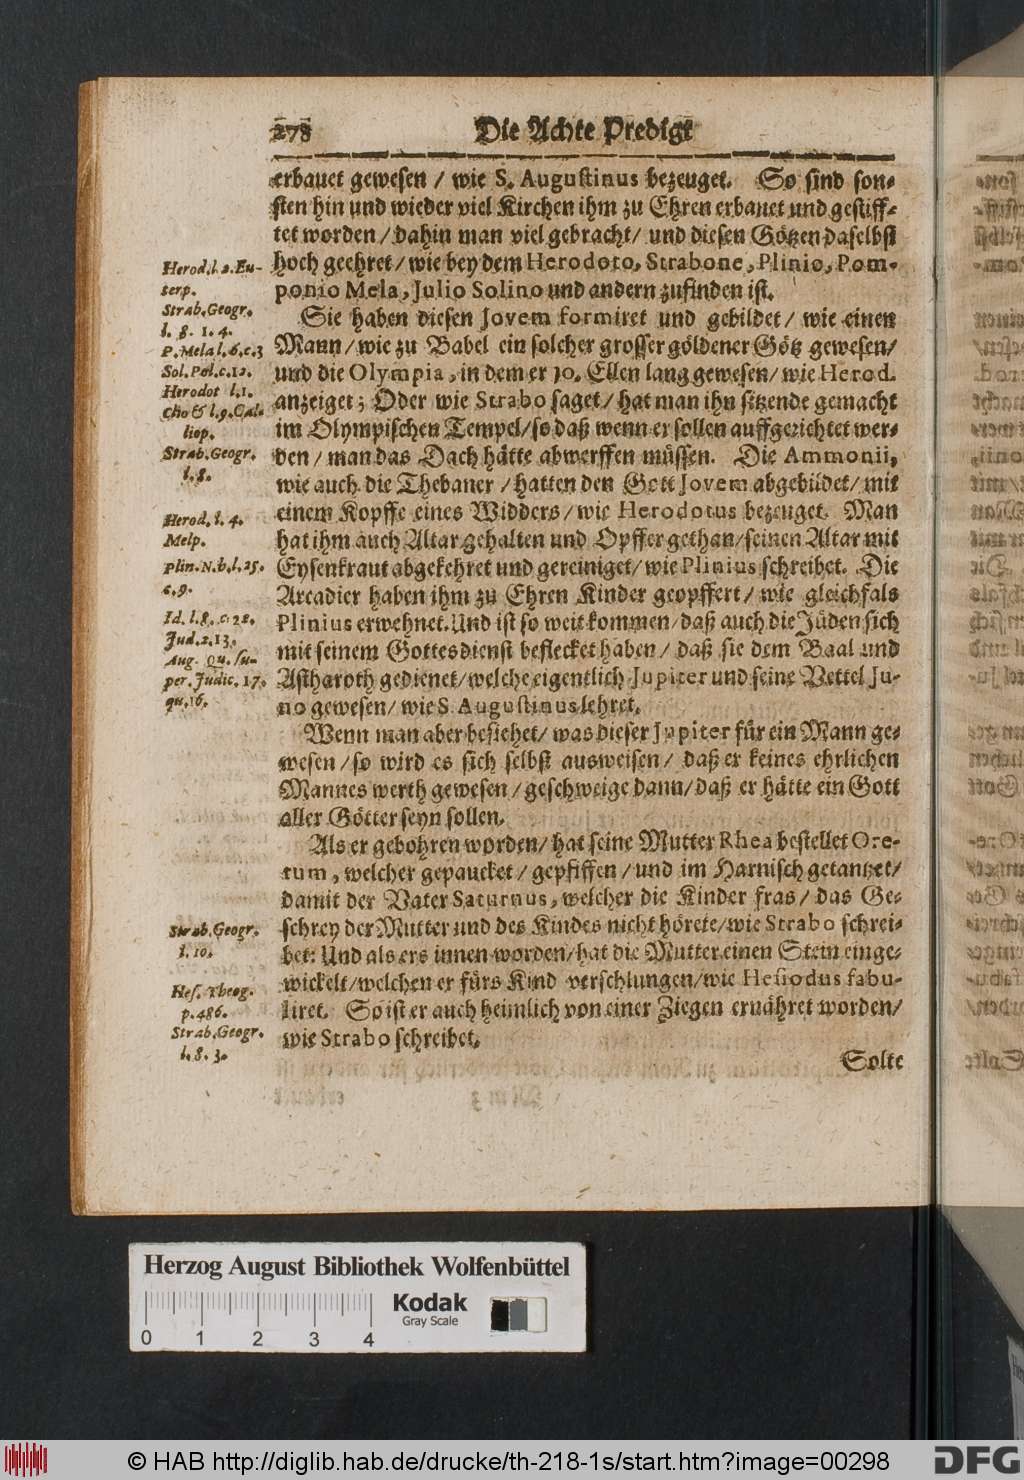 278 Die Achte Predigt
erbauet gewesen / wie S. Augustinus bezeuget. So sind son-
sten hin und wieder viel Kirchen ihm zu Ehren erbauet und gestiff-
tet worden / dahin man viel gebracht / und diesen Götzen daselbst
hoch geehret / wie bey dem Herodoto, Strabone, Plinio, Pom-
ponio Mela, Julio Solino und andern zufinden ist.
Sie haben diesen Jovem formiret und gebildet / wie einen
Mann / wie zu Babel ein solcher grosser göldener Götz gewesen /
und die Olympia, in dem er 10. Ellen lang gewesen / wie Herod.
anzeiget; Oder wie Strabo saget / hat man ihn sitzende gemacht
im Olympischen Tempel / so daß wenn er sollen auffgerichtet wer-
den / man das Dach hätte abwerffen müssen. Die Ammonii,
wie auch die Thebaner / hatten den Gott Jovem abgebildet / mit
einem Kopffe eines Widders / wie Herodotus bezeuget. Man
hat ihm auch Altar gehalten und Opffer gethan / seinen Altar mit
Eysenkraut abgekehret und gereiniget / wie Plinius schreibet. Die
Arcadier haben ihm zu Ehren Kinder geopffert / wie gleichfals
Plinius erwehnet. Und ist so weit kommen / daß auch die Jüden sich
mit seinem Gottesdienst beflecket haben / daß sie dem Baal und
Astharoth gedienet / welche eigentlich Jupiter und seine Vettel Ju-
no gewesen / wie S. Augustinus lehret.
Wenn man aber besiehet / was dieser Jupiter für ein Mann ge-
wesen / so wird es sich selbst ausweisen / daß er keines ehrlichen
Mannes werth gewesen / geschweige dann / daß er hätte ein Gott
aller Götter seyn sollen.
Als er gebohren worden / hat seine Mutter Rhea bestellet Ore-
tum, welcher gepaucket / gepfiffen / und im Harnisch getantzet /
damit der Vater Saturnus, welcher die Kinder fras / das Ge-
schrey der Mutter und des Kindes nicht hörete / wie Strabo schrei-
bet: Und als ers innen worden / hat die Mutter einen Stein einge-
wickelt / welchen er fürs Kind verschlungen / wie Hesiodus fabu-
liret. So ist er auch heimlich von einer Ziegen ernähret worden /
wie Strabo schreibet.
Solte
Herod. l. 2. Eu-
terp.
Strab. Geogr.
l. 8. 1. 4.
P. Mela l. 6. c. 3
Sol. Pol. c. 12.
Herodot l. 1.
Clio & l. 9. Cal-
liop.
Strab. Geogr.
l. 8.
Herod. l. 4.
Melp.
Plin. N. h. l. 25.
c. 9.
Id. l. 8. c. 22.
Jud. 2. 13.
Aug. qu. su-
per. Judic. 17.
qu. 16.
Strab. Geogr.
l. 10.
Hes. Theog.
p. 486.
Strab. Geogr.
l. 8. 3.
Herzog August Bibliothek Wolfenbüttel
0 1 2 3 4
Kodak
Gray Scale
© HAB http://diglib.hab.de/drucke/th-218-1s/start.htm?image=00298
DFG